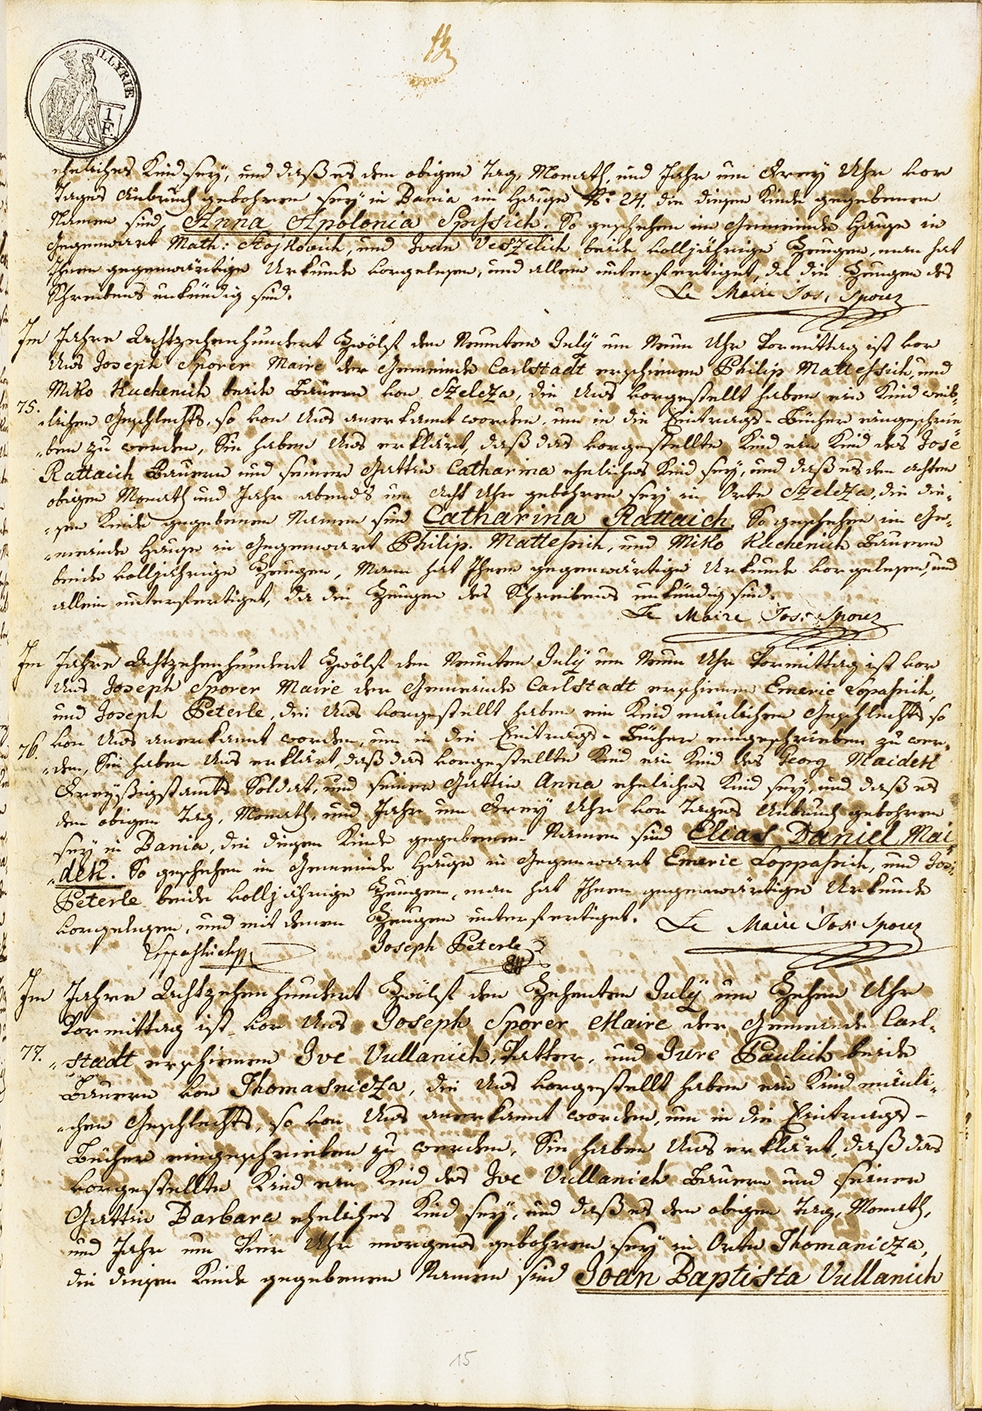 ILLYRIE
1
F.
ehelaiches Kind seÿ, und daß es den obigen Tag, Monath, und Jahr um Dreÿ Uhr vor
Tages Anbruch gebohren seÿ in Bania im Hause No: 24. die diesem Kinde gegebenen
Namen sind Anna Apolonia Spissich. So geschehen im Gemeinde Hause in
Gegenwart Math: Stojkovich, und Ivan Veszelich beide volljährige Zeugen, man hat
Ihnen gegenwärtige Urkunde vorgelesen, und allein unterfertiget, da die Zeugen des
Schreibens unkündig sind.
Le Maire Jos: Sporer
Im Jahre Achtzehenhundert Zwölf den Neunten Julÿ um Neun Uhr Vormittag ist vor
Uns Joseph Sporer Maire der Gemeinde Carlstadt erschienen Philip Mattessich, und
Miko Kuchenich beide Bauern von Szelcza, die Uns vorgestellt haben ein Kind weib-
75.
-lichen Geschlechts, so von Uns anerkannt worden, um in die Eintrags-Bücher eingeschrie-
-ben zu werden, Sie haben Uns erklärt, daß das vorgestellte Kind ein Kind des José
Rattaich Bauern und seiner Gattin Catharina eheliches Kind seÿ, und daß es den achten
obigen Monath und Jahr abends um Acht Uhr gebohren seÿ in Orte Szelcza, die die-
-sem Kinde gegebenen Namen sind Catharina Rattaich. So geschehen im Ge-
-meinde Hause in Gegenwart Philip Mattessich, und Miko Kuchenich Bauern
beide volljährige Zeugen, Mann hat Ihnen gegenwärtige Urkunde vorgelesen, und
allein unterfertiget, da die Zeugen des Schreibens unkündig sind.
Le Maire Jos: Sporer
Im Jahre Achtzehenhundert Zwölf den Neunten Julÿ um Neun Uhr Vormittag ist vor
Uns Joseph Sporer Maire der Gemeinde Carlstadt erschienen Emeric Lopassich,
und Joseph Peterle, die Uns vorgestellt haben ein Kind mänlichen Geschlechts so
76.
von Uns anerkannt worden, um in die Eintrags-Bücher eingeschrieben zu wer-
-den, Sie haben Uns erklärt, daß das vorgestellte Kind ein Kind des Georg Maidek
Dreÿßigstamts Soldat, und seiner Gattin Anna eheliches Kind seÿ, und daß es
den obigen Tag, Monath, und Jahr um Dreÿ Uhr vor Tages Anbruch gebohren
seÿ in Bania, die diesem Kinde gegebenen Namen sind Elias Daniel Mai-
-dek. So geschehen im Gemeinde Hause in Gegenwart Emeric Loppassich, und Jos:
Peterle beide volljährige Zeugen, man hat Ihnen gegenwärtige Urkunde
vorgelesen, und mit denen Zeugen unterfertiget.
Le Maire Jos: Sporer
Joseph Peterle
Im Jahre Achtzehenhundert Zwölf den Zehenten Julÿ um Zehen Uhr
Vormittag ist vor Uns Joseph Sporer Maire der Gemeinde Carl-
77.
-stadt erschienen Ive Vullanich, Vatter, und Jure Paulich beide
Bauern von Thomasnicza, die Uns vorgestellt haben ein Kind mänli-
-chen Geschlechts, so von Uns anerkannt worden, um in die Eintrags-
Bücher eingeschrieben zu werden, Sie haben Uns erklärt, daß das
vorgestellte Kind ein Kind des Ive Vullanich Bauern und seiner
Gattin Barbara eheliches Kind seÿ, und daß es den obigen Tag, Monath,
und Jahr um Vier Uhr morgens gebohren seÿ in Orte Thomanicza,
die diesem Kinde gegebenen Namen sind Joan Baptista Vullanich
15